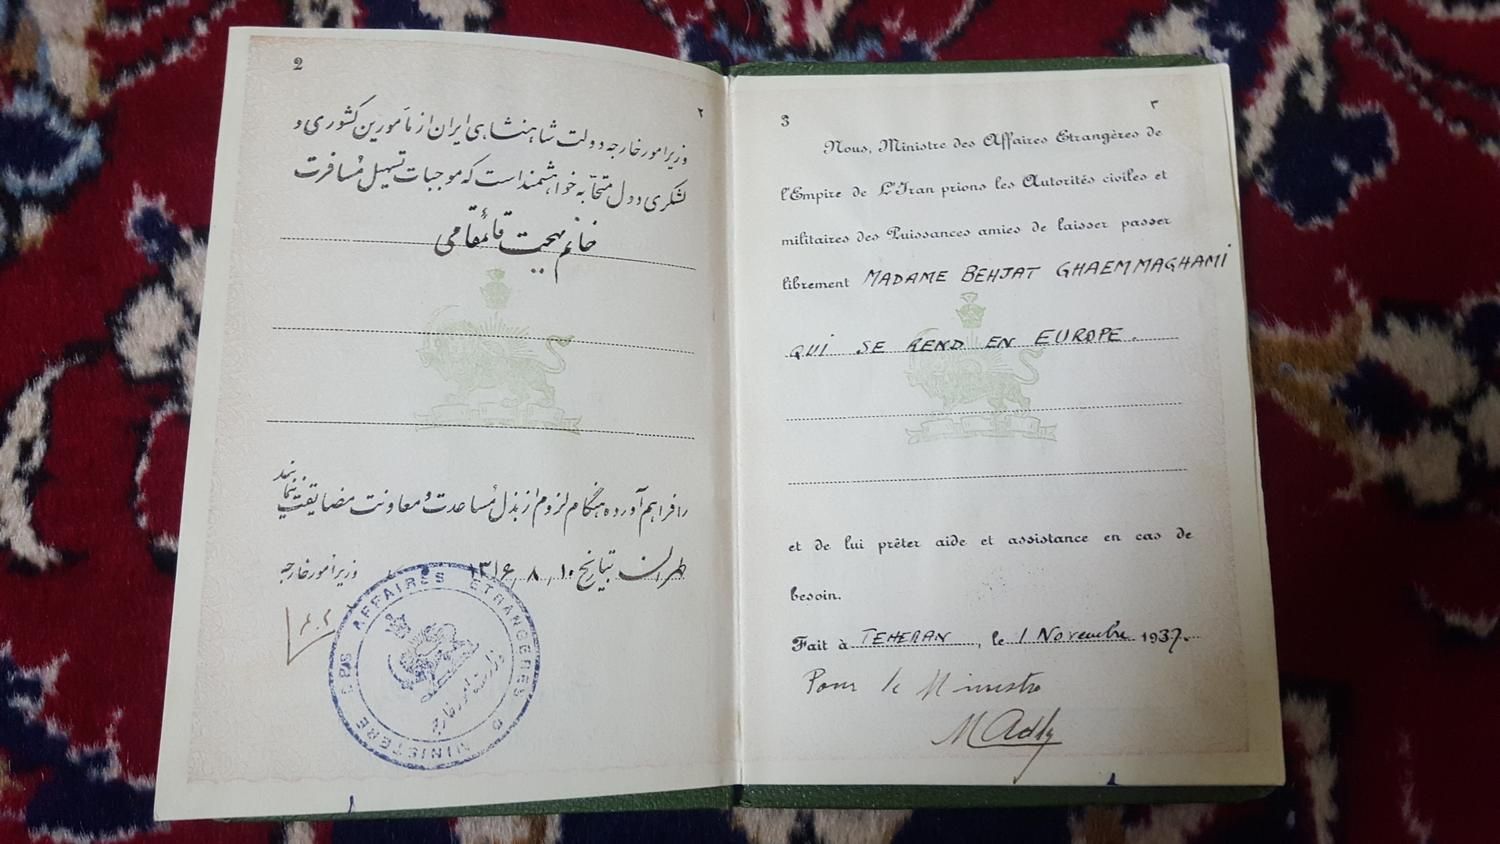 2
۲
وزیر امور خارجه دولت شاهنشاهی ایران از مأمورین کشوری و
لشکری و دول متحابه خواهشمند است که موجبات تسهیل مسافرت
خانم بهجت قائم‌مقامی
را فراهم آورده هنگام لزوم از بذل مساعدت و معاونت مضایقت ننمایند
طهران بتاریخ ۱۰ ، ۸ ، ۱۳۱۶
وزیر امور خارجه
MINISTERE AFFAIRES ETRANGERES
وزارت امور خارجه
3
۳
Nous, Ministre des Affaires Etrangères de
l'Empire de L'Iran prions les Autorités civiles et
militaires des Puissances amies de laisser passer
librement MADAME BEHJAT GHAEMMAGHAMI
QUI SE REND EN EUROPE.
et de lui prêter aide et assistance en cas de
besoin.
Fait à TEHERAN, le 1 Novembre 1937.
Pour le Ministre
M Adly